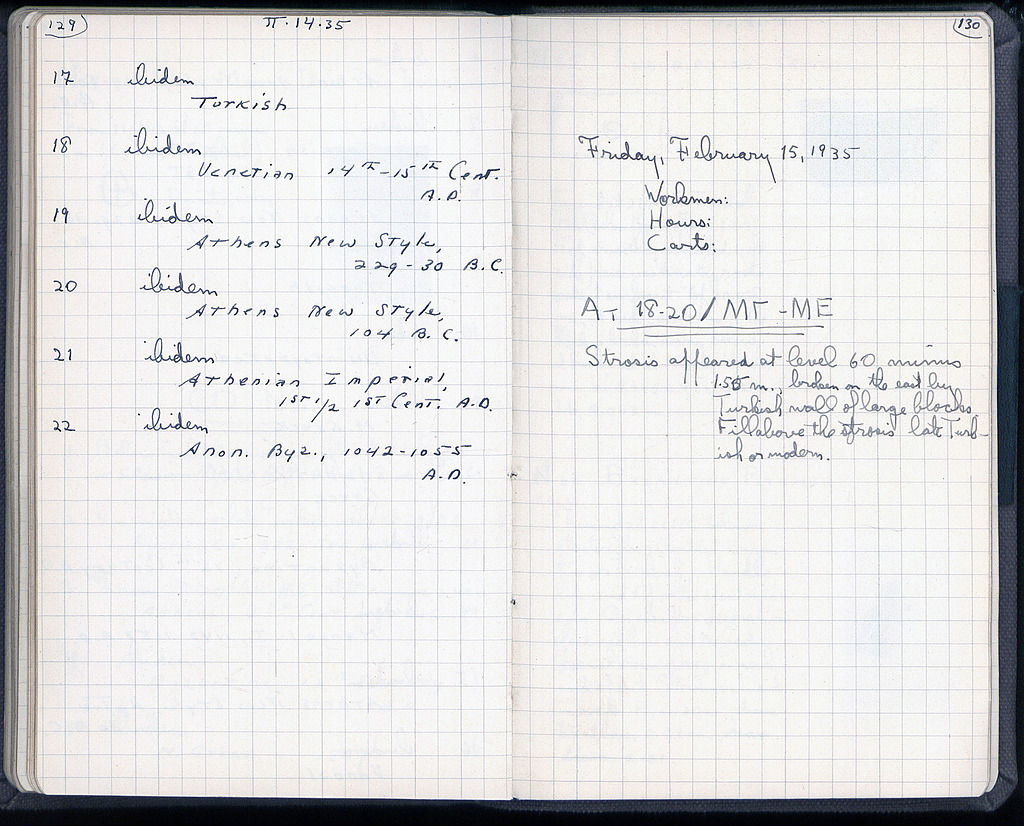 129
II·14·35
17 ibidem
Turkish
18 ibidem
Venetian 14TH-15TH Cent.
A.D.
19 ibidem
Athens New Style,
229-30 B.C.
20 ibidem
Athens New Style,
104 B.C.
21 ibidem
Athenian Imperial,
1ST 1/2 1ST Cent. A.D.
22 ibidem
Anon. Byz., 1042-1055
A.D.
130
Friday, February 15, 1935
Workmen:
Hours:
Carts:
AT 18-20/ΜΓ-ΜΕ
Strosis appeared at level 60 minus
1.55 m., broken on the east by
Turkish wall of large blocks.
Fill above the strosis late Turk-
ish or modern.